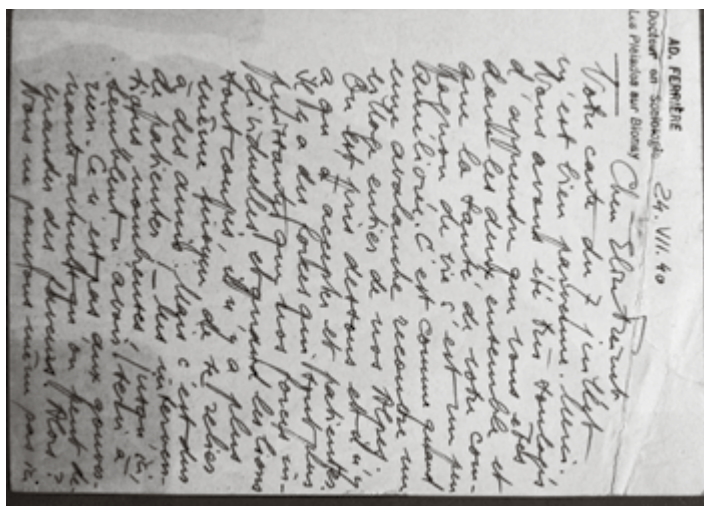 AD. FERRIÈRE
Docteur en sociologie
Les Pleiades sur Blonay
24. VII. 40
Cher Elie
Votre carte du 7 juillet
m'est bien parvenue. Merci.
Nous avons été très soulagés
d'apprendre que vous êtes
tous les deux ensemble et
que la santé de votre com-
pagnon de vie s'est un peu
améliorée. C'est comme quand
une avalanche recouvre un
village entier de nos Alpes.
On est pris dessous et il n'y
a qu'à accepter et patienter.
Il y a des forces qui sont plus
puissantes que nos forces in-
dividuelles et quand les liens
sont coupés, il n'y a plus
même moyen de se relier
à des amis. Mais c'est dur
de patienter. Les interven-
tions nombreuses, jusqu'ici,
semblent n'avoir servi à
rien. Ce n'est pas aux gouver-
nants actuels qu'on peut de-
mander des faveurs. Alors ?
Nous ne pouvons même pas